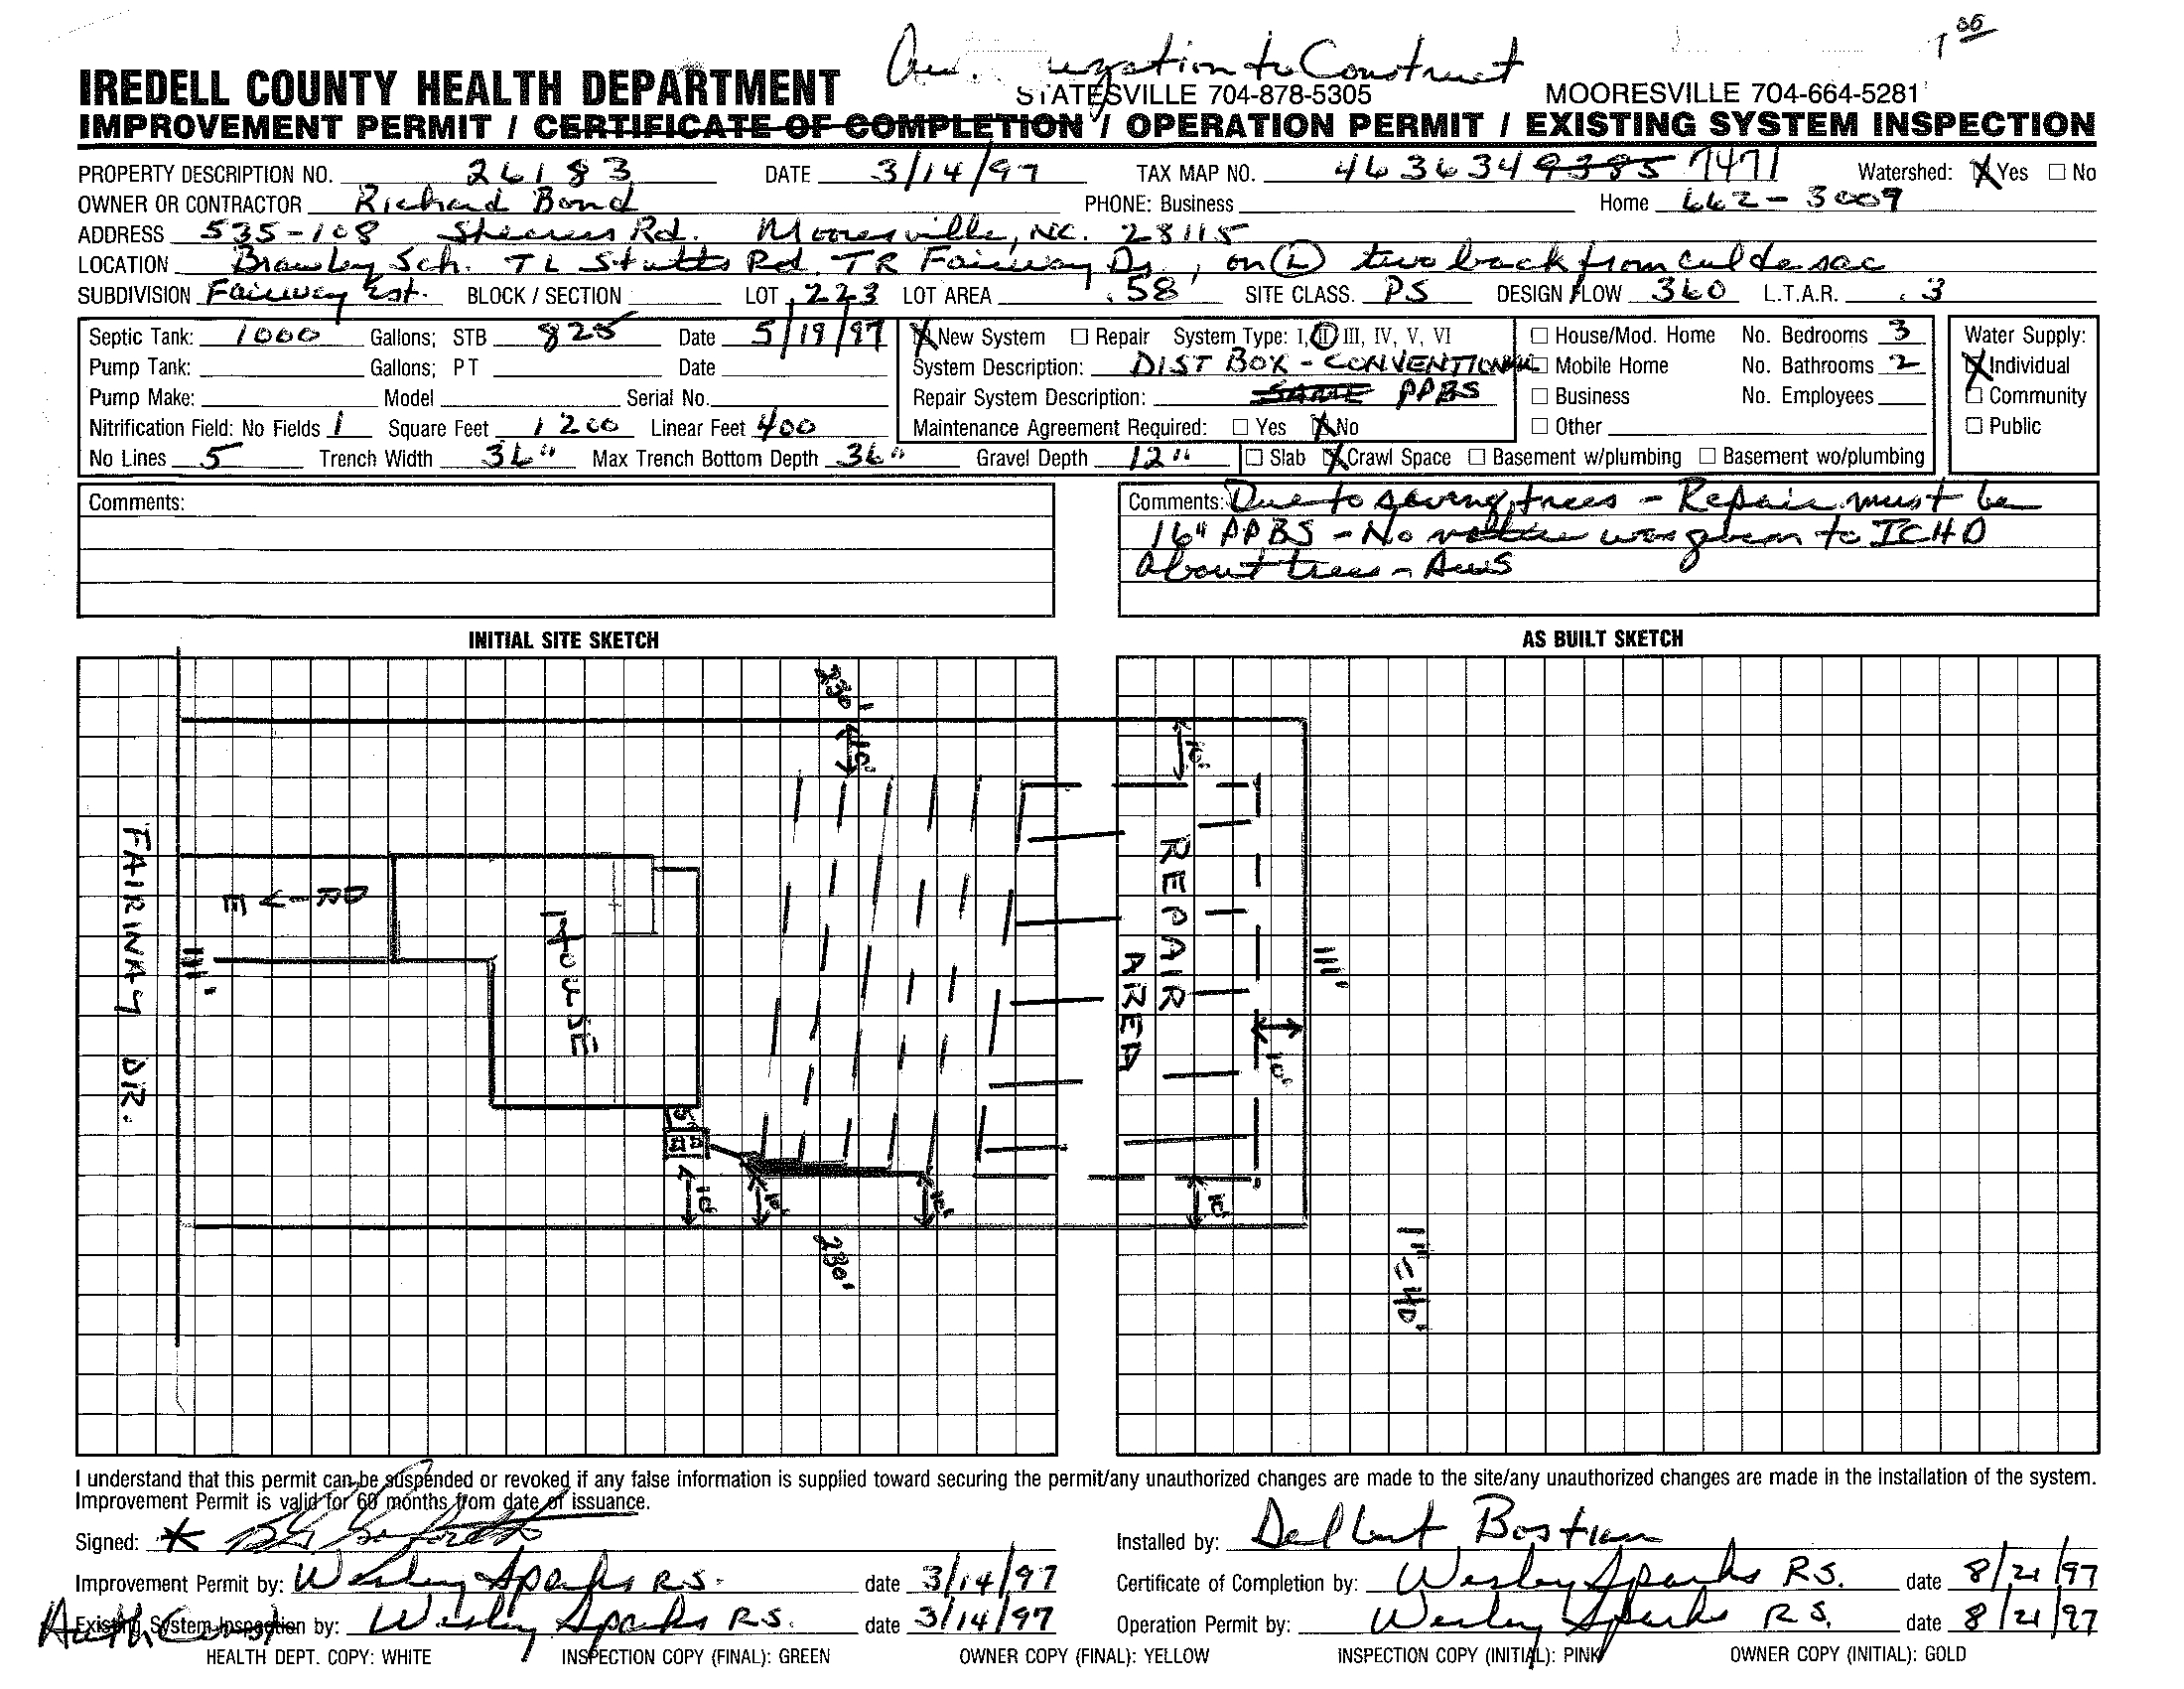 1 00
Authorization to Construct
IREDELL COUNTY HEALTH DEPARTMENT STATESVILLE 704-878-5305 MOORESVILLE 704-664-5281
IMPROVEMENT PERMIT / CERTIFICATE OF COMPLETION / OPERATION PERMIT / EXISTING SYSTEM INSPECTION
PROPERTY DESCRIPTION NO. 26183 DATE 3/14/97 TAX MAP NO. 4636349385 7471 Watershed: X Yes ☐ No
OWNER OR CONTRACTOR Richard Bond PHONE: Business Home 662-3009
ADDRESS 535-108 Shearers Rd. Mooresville, NC. 28115
LOCATION Brawley Sch. TL Stutts Rd. TR Fairway Dr, on (L) two back from cul de sac
SUBDIVISION Fairway Est. BLOCK / SECTION LOT 223 LOT AREA .58 SITE CLASS. PS DESIGN FLOW 360 L.T.A.R. .3
Septic Tank: 1000 Gallons; STB 825 Date 5/19/97 X New System ☐ Repair System Type: I, II, III, IV, V, VI ☐ House/Mod. Home No. Bedrooms 3 Water Supply:
Pump Tank: Gallons; PT Date System Description: DIST BOX - CONVENTIONAL ☐ Mobile Home No. Bathrooms 2 X Individual
Pump Make: Model Serial No. Repair System Description: SAME PPBS ☐ Business No. Employees ☐ Community
Nitrification Field: No Fields 1 Square Feet 1200 Linear Feet 400 Maintenance Agreement Required: ☐ Yes X No ☐ Other ☐ Public
No Lines 5 Trench Width 36" Max Trench Bottom Depth 36" Gravel Depth 12" ☐ Slab X Crawl Space ☐ Basement w/plumbing ☐ Basement wo/plumbing
Comments:
Comments: Due to saving trees - Repair must be
16" PPBS - No notice was given to ICHD
About trees - AWS
INITIAL SITE SKETCH AS BUILT SKETCH
230'
10'
10'
FAIRWAY DR.
111'
HOUSE
REPAIR
AREA
111'
10'
5'
10'
10'
10'
10'
230'
1"=40'
I understand that this permit can be suspended or revoked if any false information is supplied toward securing the permit/any unauthorized changes are made to the site/any unauthorized changes are made in the installation of the system.
Improvement Permit is valid for 60 months from date of issuance.
Signed: *
Installed by: Delbert Bostian
Improvement Permit by: Wesley Sparks R.S. date 3/14/97 Certificate of Completion by: Wesley Sparks R.S. date 8/21/97
Auth Const Existing System Inspection by: Wesley Sparks R.S. date 3/14/97 Operation Permit by: Wesley Sparks R.S. date 8/21/97
HEALTH DEPT. COPY: WHITE INSPECTION COPY (FINAL): GREEN OWNER COPY (FINAL): YELLOW INSPECTION COPY (INITIAL): PINK OWNER COPY (INITIAL): GOLD